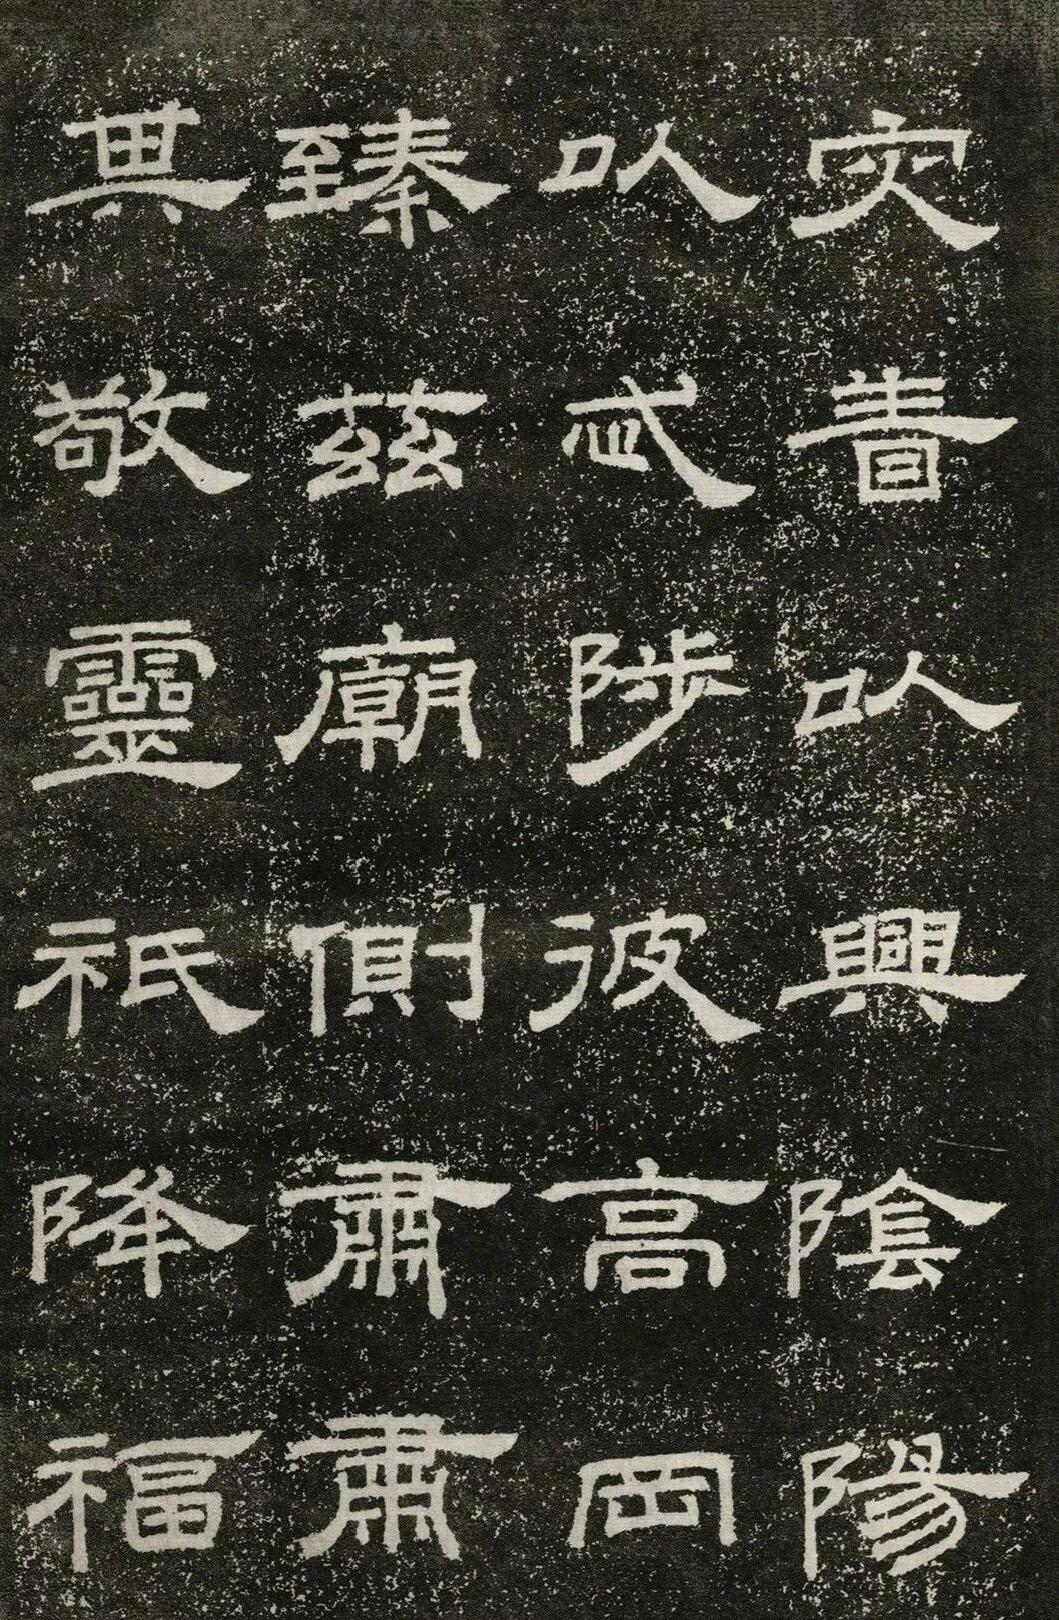 灾眚以興陰陽
以忒陟彼高岡
臻兹廟側肅肅
其敬靈祇降福